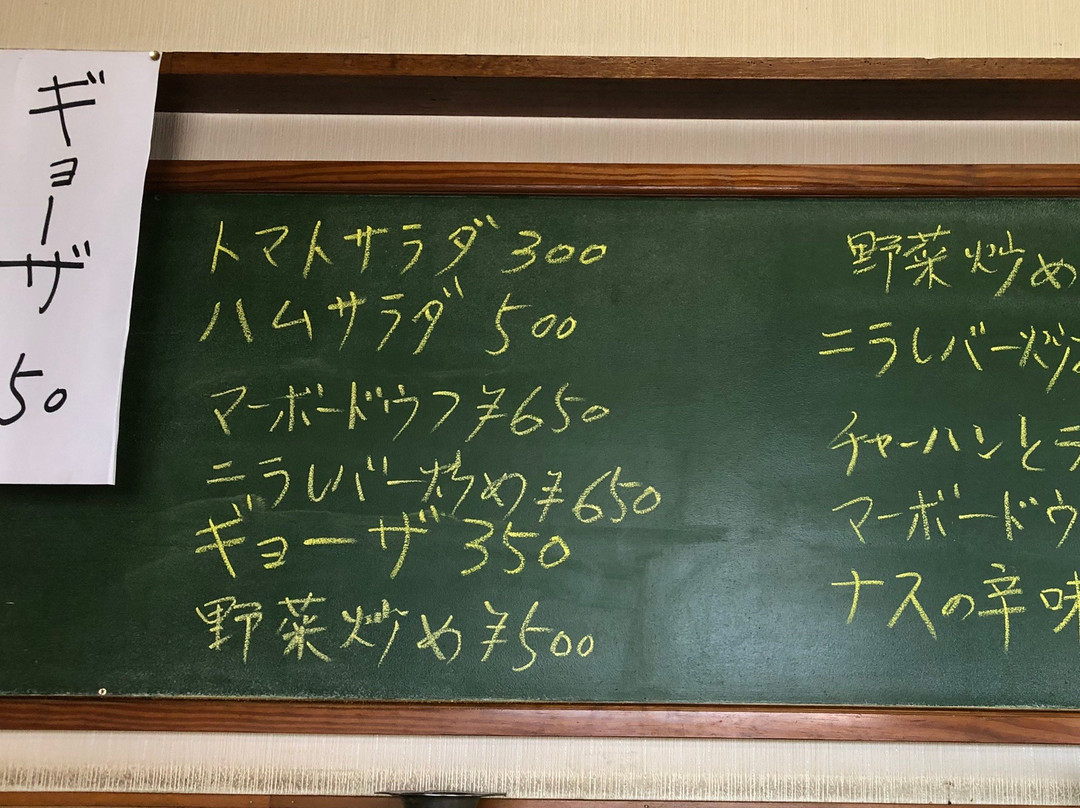 ギョーザ
50
トマトサラダ 300
ハムサラダ 500
マーボードウフ ¥650
ニラレバー炒め ¥650
ギョーザ 350
野菜炒め ¥500
野菜炒め
ニラレバー炒
チャーハンとラ
マーボードウ
ナスの辛味